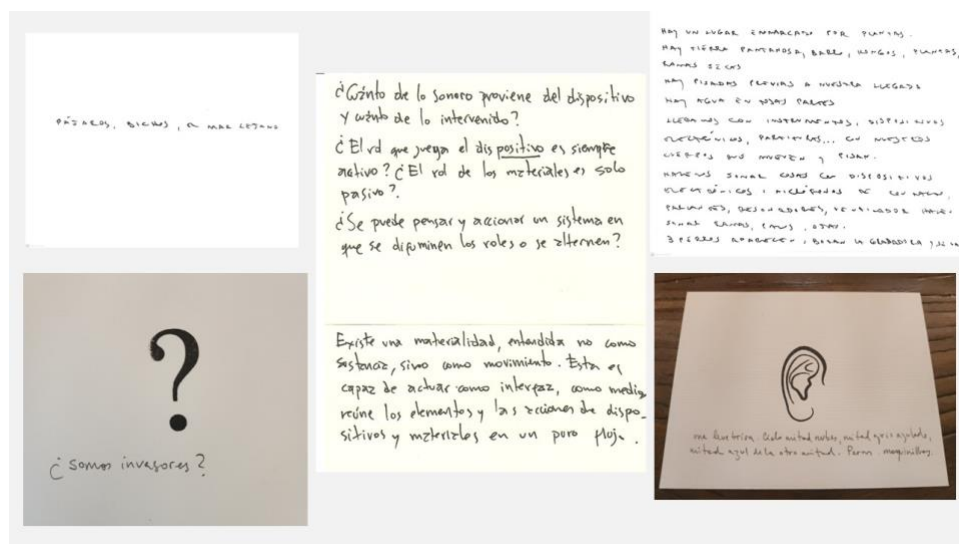 PÁJAROS, BICHOS, EL MAR LEJANO
¿Somos invasores?
¿Cuánto de lo sonoro proviene del dispositivo
y cuánto de lo intervenido?
¿El rol que juega el dispositivo es siempre
activo? ¿El rol de los materiales es solo
pasivo?
¿Se puede pensar y accionar un sistema en
que se difuminen los roles o se alternen?
Existe una materialidad, entendida no como
sustancia, sino como movimiento. Esta es
capaz de actuar como interfaz, como medio,
reúne los elementos y las acciones de dispo-
sitivos y materiales en un puro flujo.
HAY UN LUGAR ENMARCADO POR PLANTAS.
HAY TIERRA PANTANOSA, BARRO, HONGOS, PLANTAS,
RAMAS SECAS
HAY PISADAS PREVIAS A NUESTRA LLEGADA
HAY AGUA EN TODAS PARTES
LLEGAMOS CON INSTRUMENTOS, DISPOSITIVOS
ELECTRÓNICOS, PARTITURAS... CON NUESTROS
CUERPOS QUE MUEVEN Y PISAN.
HACEMOS SONAR COSAS CON DISPOSITIVOS
ELECTRÓNICOS: MICRÓFONOS DE CONTACTO,
PARLANTES, VENTILADOR
SONAR RAMAS,
3 PERROS APARECEN, LA GRABADORA Y SE
una leve brisa. Cielo mitad nubes, mitad gris azulado,
mitad azul de la otra mitad. Perros. maquinillas.